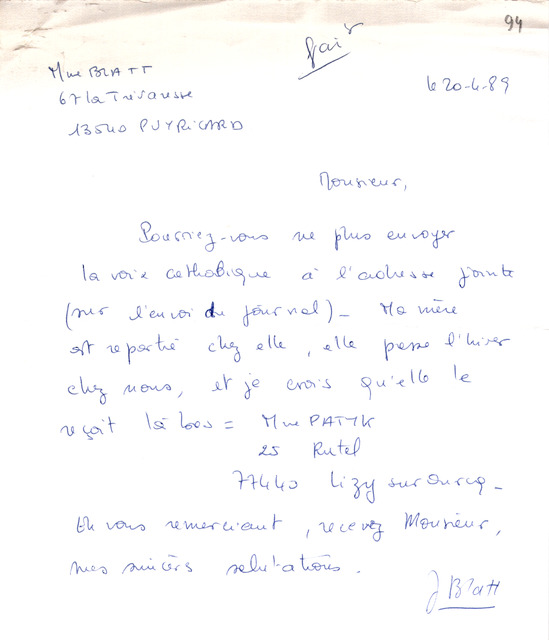 94
fait
Mme BLATT
le 20-4-89
67 la Trévaresse
13540 PUYRICARD
Monsieur,
Pourriez-vous ne plus envoyer
la voix catholique à l'adresse jointe
(sur l'envoi du journal)_ Ma mère
est repartie chez elle, elle passe l'hiver
chez nous, et je crois qu'elle le
reçoit là bas = Mme PATYK
25 Rutel
77440 Lizy sur Ourcq_
En vous remerciant, recevez Monsieur,
mes sincères salutations.
J Blatt